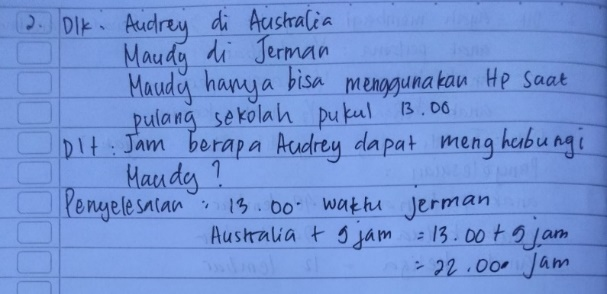 2. Dik. Audrey di Australia
Maudy di Jerman
Maudy hanya bisa menggunakan Hp saat
pulang sekolah pukul 13.00
Dit : Jam berapa Audrey dapat menghubungi
Maudy ?
Penyelesaian : 13.00 waktu jerman
Australia + 9 jam = 13.00 + 9 jam
= 22.00 jam